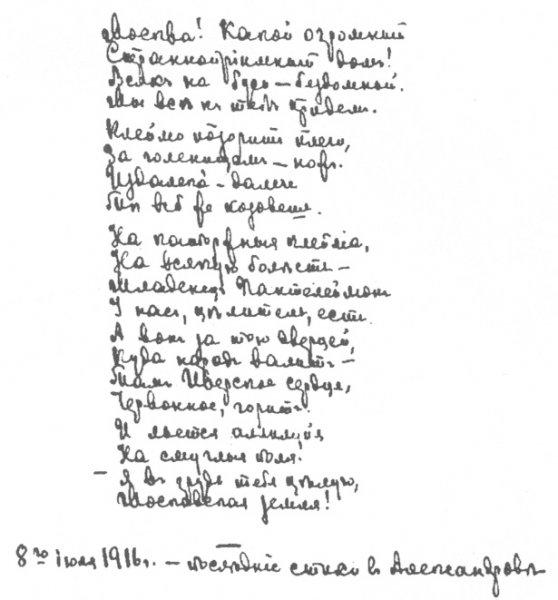 Москва! Какой огромный
Страннопріимный домъ!
Всякъ на Руси — бездомный.
Мы всѣ къ тебѣ придемъ.
Клеймо позоритъ плечи,
За голенищемъ — ножъ.
Издалека — далече
Ты всё же позовешь.
На каторжныя клейма,
На всякую болѣсть —
Младенецъ Пантелеймонъ
У насъ, цѣлитель, есть.
А вонъ за тою дверцей,
Куда народъ валитъ —
Тамъ Иверское сердце,
Червонное, горитъ.
И льется аллилуйя
На смуглыя поля.
— Я въ грудь тебя цѣлую,
Московская земля!
8го іюля 1916г. — послѣдніе стихи в Александровѣ